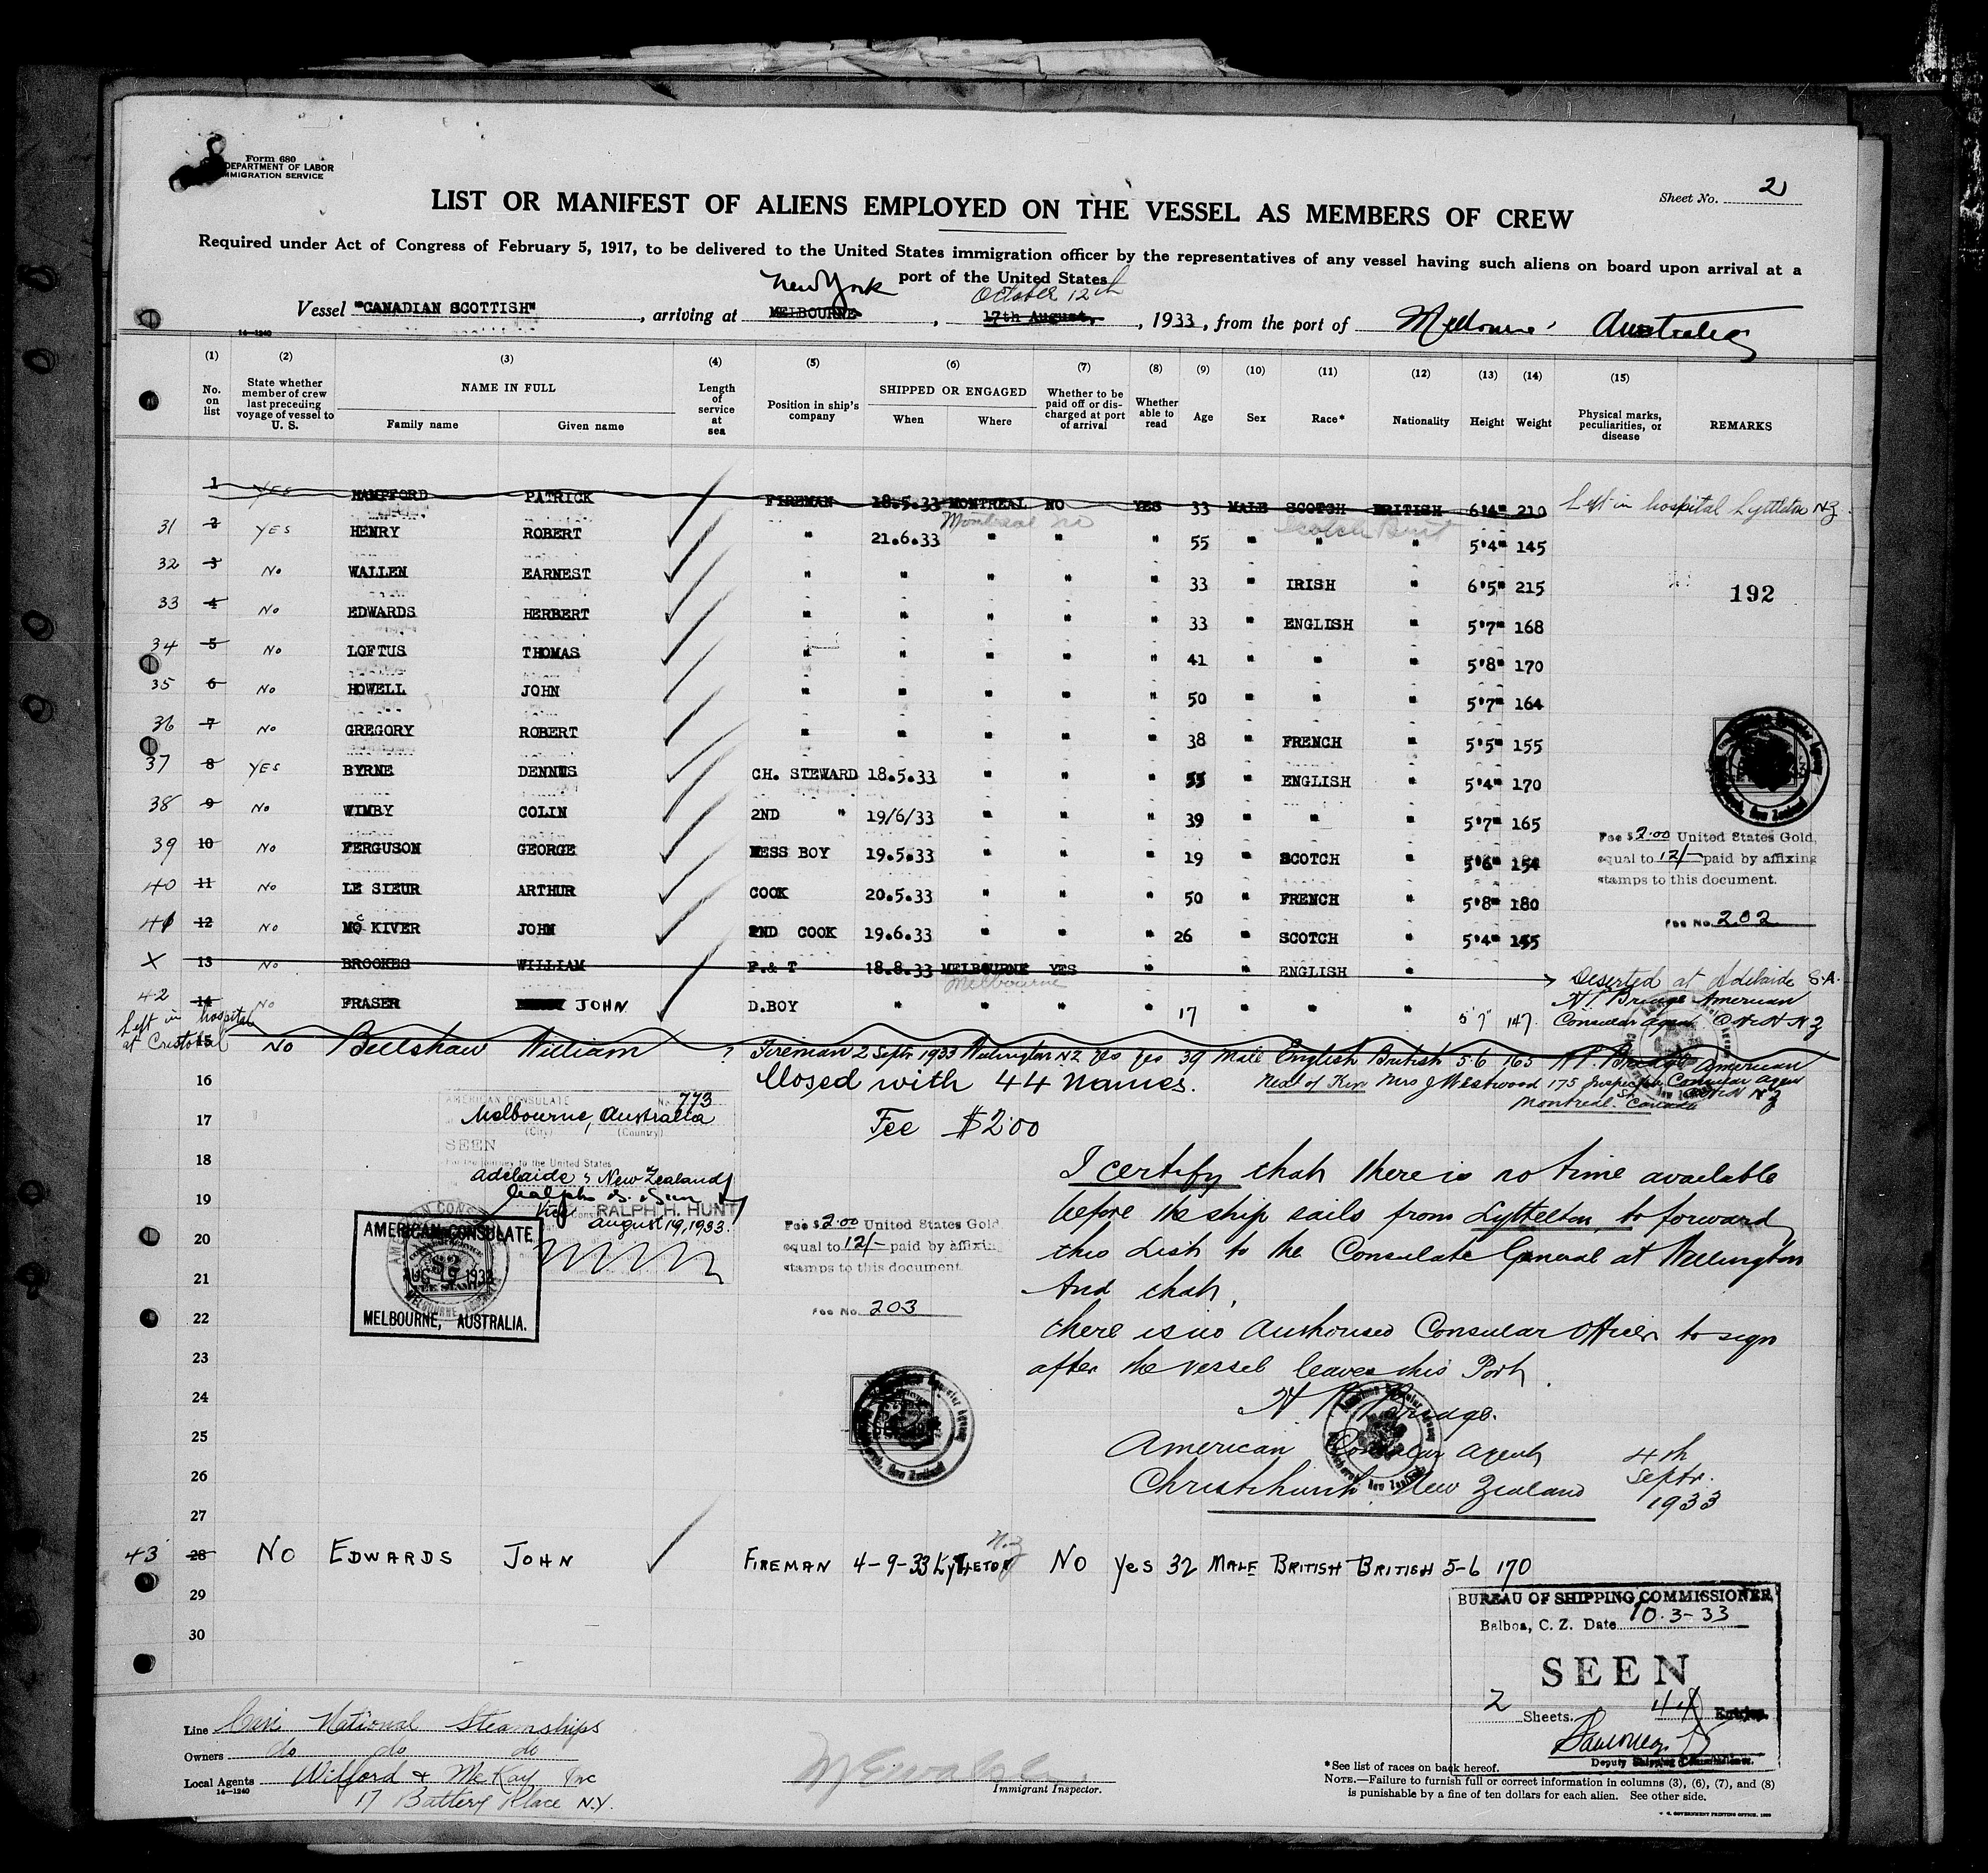 Form 680
DEPARTMENT OF LABOR
IMMIGRATION SERVICE
Sheet No. 2
LIST OR MANIFEST OF ALIENS EMPLOYED ON THE VESSEL AS MEMBERS OF CREW
Required under Act of Congress of February 5, 1917, to be delivered to the United States immigration officer by the representatives of any vessel having such aliens on board upon arrival at a
port of the United States
New York October 12th
Vessel "CANADIAN SCOTTISH", arriving at MELBOURNE, 17th August, 1933, from the port of Melbourne, Australia
14—1240
(1) (2) (3) (4) (5) (6) (7) (8) (9) (10) (11) (12) (13) (14) (15)
No. on list
State whether member of crew last preceding voyage of vessel to U. S.
NAME IN FULL
Family name Given name
Length of service at sea
Position in ship's company
SHIPPED OR ENGAGED
When Where
Whether to be paid off or discharged at port of arrival
Whether able to read
Age Sex Race* Nationality Height Weight
Physical marks, peculiarities, or disease
REMARKS
1 YES HAMPFORD PATRICK FIREMAN 18.5.33 MONTREAL NO YES 33 MALE SCOTCH BRITISH 6'4" 210 Left in hospital Lyttelton NZ.
Montreal no Scotch Brit
31 2 YES HENRY ROBERT " 21.6.33 " " " 55 " " " 5'4" 145
32 3 No WALLEN EARNEST " " " " " 33 " IRISH " 6'5" 215
192
33 4 No EDWARDS HERBERT " " " " " 33 " ENGLISH " 5'7" 168
34 5 No LOFTUS THOMAS " " " " " 41 " " " 5'8" 170
35 6 No HOWELL JOHN " " " " " 50 " " " 5'7" 164
36 7 No GREGORY ROBERT " " " " " 38 " FRENCH " 5'5" 155
37 8 YES BYRNE DENNIS CH. STEWARD 18.5.33 " " " 55 " ENGLISH " 5'4" 170
38 9 No WIMBY COLIN 2ND " 19/6/33 " " " 39 " " " 5'7" 165
39 10 No FERGUSON GEORGE MESS BOY 19.5.33 " " " 19 " SCOTCH " 5'6" 154
40 11 No LE SIEUR ARTHUR COOK 20.5.33 " " " 50 " FRENCH " 5'8" 180
41 12 No Mc KIVER JOHN 2ND COOK 19.6.33 " " " 26 " SCOTCH " 5'4" 155
Fee $2.00 United States Gold,
equal to 12/- paid by affixing
stamps to this document.
Fee No. 202
X 13 No BROOKES WILLIAM F.& T 18.8.33 MELBOURNE YES " " ENGLISH " Deserted at Adelaide S.A.
Melbourne
42 14 No FRASER JOHN D.BOY " " " " 17 " " " 5'7" 147.
H P Bridge American
Consular agent Ch.ch N Z
Left in hospital
at Cristobal
15 No Beelshaw William ? Fireman 2 Septr 1933 Wellington NZ Yes Yes 39 Male English British 5.6 165 H P Bridge American
Consular agent
Ch.ch N Z
16 Closed with 44 names. Next of Kin Mrs J Westwood 175
Montreal. Canada
AMERICAN CONSULATE No. 773
Melbourne, Australia
(City) (Country)
SEEN
For the journey to the United States
17 Fee $2.00
18
Adelaide & New Zealand
Ralph H. Hunt
19
Vice RALPH H. HUNT
August 19, 1933.
20
21
22
AMERICAN CONSULATE
AUG 19 1933
MELBOURNE, AUSTRALIA.
Fee $2.00 United States Gold
equal to 12/- paid by affixing
stamps to this document.
Fee No. 203
I certify that there is no time available
before the ship sails from Lyttelton, to forward
this List to the Consulate General at Wellington
And that,
there is no Authorised Consular Officer to sign
after the vessel leaves this Port.
H P Bridge.
American Consular Agent
Christchurch New Zealand
4th
Septr.
1933
23
24
25
26
27
43 28 No EDWARDS JOHN FIREMAN 4-9-33 LYTTLETON N.Z No Yes 32 MALE BRITISH BRITISH 5-6 170
29
30
BUREAU OF SHIPPING COMMISSIONER
Balboa, C. Z. Date 10-3-33
SEEN
2 Sheets. 44 Entries.
Deputy Shipping Commissioner.
Line Can National Steamships
Owners do do do
Local Agents Wilford & McKay Inc
14—1240
17 Battery Place N.Y.
Immigrant Inspector.
*See list of races on back hereof.
NOTE.—Failure to furnish full or correct information in columns (3), (6), (7), and (8)
is punishable by a fine of ten dollars for each alien. See other side.
U. S. GOVERNMENT PRINTING OFFICE